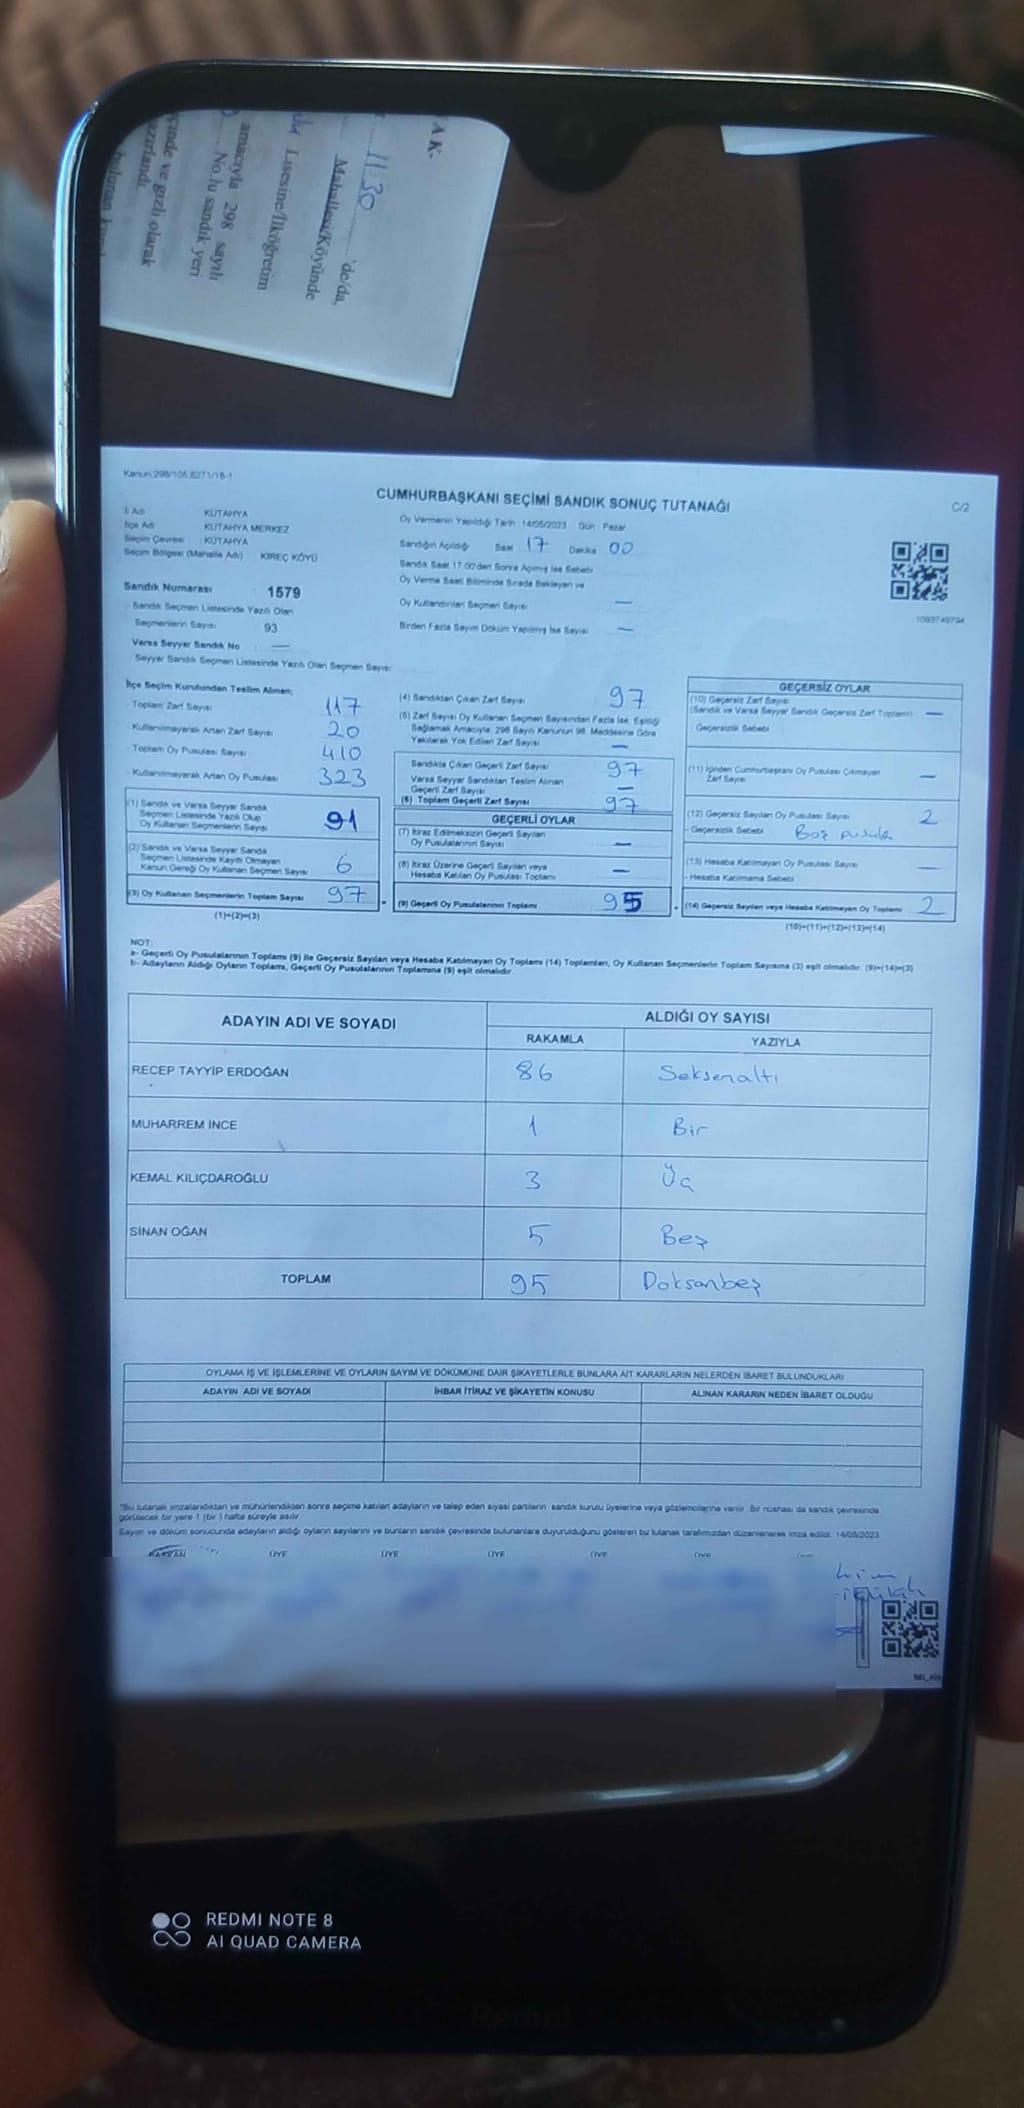 AK-
11:30
'de/da,
Mahallesi/Köyünde
Lisesine/İlköğretim
amacıyla 298 sayılı
No.lu sandık yeri
içinde ve gizli olarak
Kanun:298/105,6271/18-1
CUMHURBAŞKANI SEÇİMİ SANDIK SONUÇ TUTANAĞI
C/2
İl Adı KÜTAHYA
İlçe Adı KÜTAHYA MERKEZ
Seçim Çevresi KÜTAHYA
Seçim Bölgesi (Mahalle Adı) KİREÇ KÖYÜ
Oy Vermenin Yapıldığı Tarih 14/05/2023 Gün Pazar
Sandığın Açıldığı Saat 17 Dakika 00
Sandık Saat 17:00'den Sonra Açılmış İse Sebebi
Oy Verme Saati Bitiminde Sırada Bekleyen ve
Oy Kullandırılan Seçmen Sayısı —
Birden Fazla Sayım Döküm Yapılmış İse Sayısı —
1093749794
Sandık Numarası 1579
- Sandık Seçmen Listesinde Yazılı Olan
Seçmenlerin Sayısı 93
Varsa Seyyar Sandık No —
- Seyyar Sandık Seçmen Listesinde Yazılı Olan Seçmen Sayısı
İlçe Seçim Kurulundan Teslim Alınan;
- Toplam Zarf Sayısı 117
- Kullanılmayarak Artan Zarf Sayısı 20
- Toplam Oy Pusulası Sayısı 410
- Kullanılmayarak Artan Oy Pusulası 323
(1) Sandık ve Varsa Seyyar Sandık
Seçmen Listesinde Yazılı Olup
Oy Kullanan Seçmenlerin Sayısı 91
(2) Sandık ve Varsa Seyyar Sandık
Seçmen Listesinde Kayıtlı Olmayan
Kanun Gereği Oy Kullanan Seçmen Sayısı 6
(3) Oy Kullanan Seçmenlerin Toplam Sayısı 97
(1)+(2)=(3)
(4) Sandıktan Çıkan Zarf Sayısı 97
(5) Zarf Sayısı Oy Kullanan Seçmen Sayısından Fazla İse, Eşitliği
Sağlamak Amacıyla, 298 Sayılı Kanunun 98. Maddesine Göre
Yakılarak Yok Edilen Zarf Sayısı —
Sandıkta Çıkan Geçerli Zarf Sayısı 97
Varsa Seyyar Sandıktan Teslim Alınan
Geçerli Zarf Sayısı —
(6) Toplam Geçerli Zarf Sayısı 97
GEÇERLİ OYLAR
(7) İtiraz Edilmeksizin Geçerli Sayılan
Oy Pusulalarının Sayısı —
(8) İtiraz Üzerine Geçerli Sayılan veya
Hesaba Katılan Oy Pusulası Toplamı —
(9) Geçerli Oy Pusulalarının Toplamı 95
GEÇERSİZ OYLAR
(10) Geçersiz Zarf Sayısı
(Sandık ve Varsa Seyyar Sandık Geçersiz Zarf Toplamı) —
- Geçersizlik Sebebi
(11) İçinden Cumhurbaşkanı Oy Pusulası Çıkmayan
Zarf Sayısı —
(12) Geçersiz Sayılan Oy Pusulası Sayısı 2
- Geçersizlik Sebebi Boş pusula
(13) Hesaba Katılmayan Oy Pusulası Sayısı —
- Hesaba Katılmama Sebebi
(14) Geçersiz Sayılan veya Hesaba Katılmayan Oy Toplamı 2
(10)+(11)+(12)+(13)=(14)
NOT:
a- Geçerli Oy Pusulalarının Toplamı (9) ile Geçersiz Sayılan veya Hesaba Katılmayan Oy Toplamı (14) Toplamları, Oy Kullanan Seçmenlerin Toplam Sayısına (3) eşit olmalıdır. (9)+(14)=(3)
b- Adayların Aldığı Oyların Toplamı, Geçerli Oy Pusulalarının Toplamına (9) eşit olmalıdır.
ADAYIN ADI VE SOYADI ALDIĞI OY SAYISI
RAKAMLA YAZIYLA
RECEP TAYYİP ERDOĞAN 86 Seksenaltı
MUHARREM İNCE 1 Bir
KEMAL KILIÇDAROĞLU 3 Üç
SİNAN OĞAN 5 Beş
TOPLAM 95 Doksanbeş
OYLAMA İŞ VE İŞLEMLERİNE VE OYLARIN SAYIM VE DÖKÜMÜNE DAİR ŞİKAYETLERLE BUNLARA AİT KARARLARIN NELERDEN İBARET BULUNDUKLARI
ADAYIN ADI VE SOYADI İHBAR İTİRAZ VE ŞİKAYETİN KONUSU ALINAN KARARIN NEDEN İBARET OLDUĞU
*Bu tutanak imzalandıktan ve mühürlendikten sonra seçime katılan adayların ve talep eden siyasi partilerin sandık kurulu üyelerine veya gözlemcilerine verilir. Bir nüshası da sandık çevresinde
görülecek bir yere 1 (bir) hafta süreyle asılır.
Sayım ve döküm sonucunda adayların aldığı oyların sayılarını ve bunların sandık çevresinde bulunanlara duyurulduğunu gösteren bu tutanak tarafımızdan düzenlenerek imza edildi. 14/05/2023
BAŞKAN ÜYE ÜYE ÜYE ÜYE ÜYE
REDMI NOTE 8
AI QUAD CAMERA
Redmi